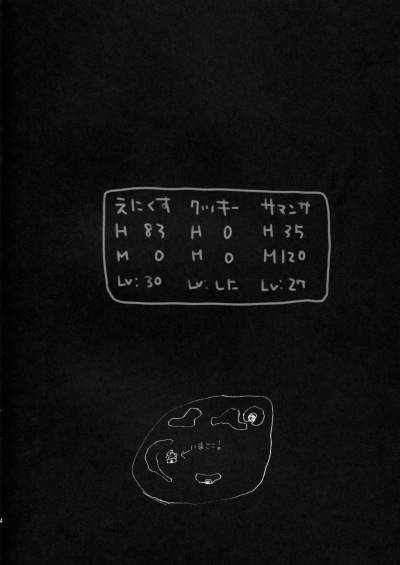 えにくす クッキー サマンサ
H 83 H 0 H 35
M 0 M 0 M120
Lv:30 Lv:した Lv:27
いまここ!
4